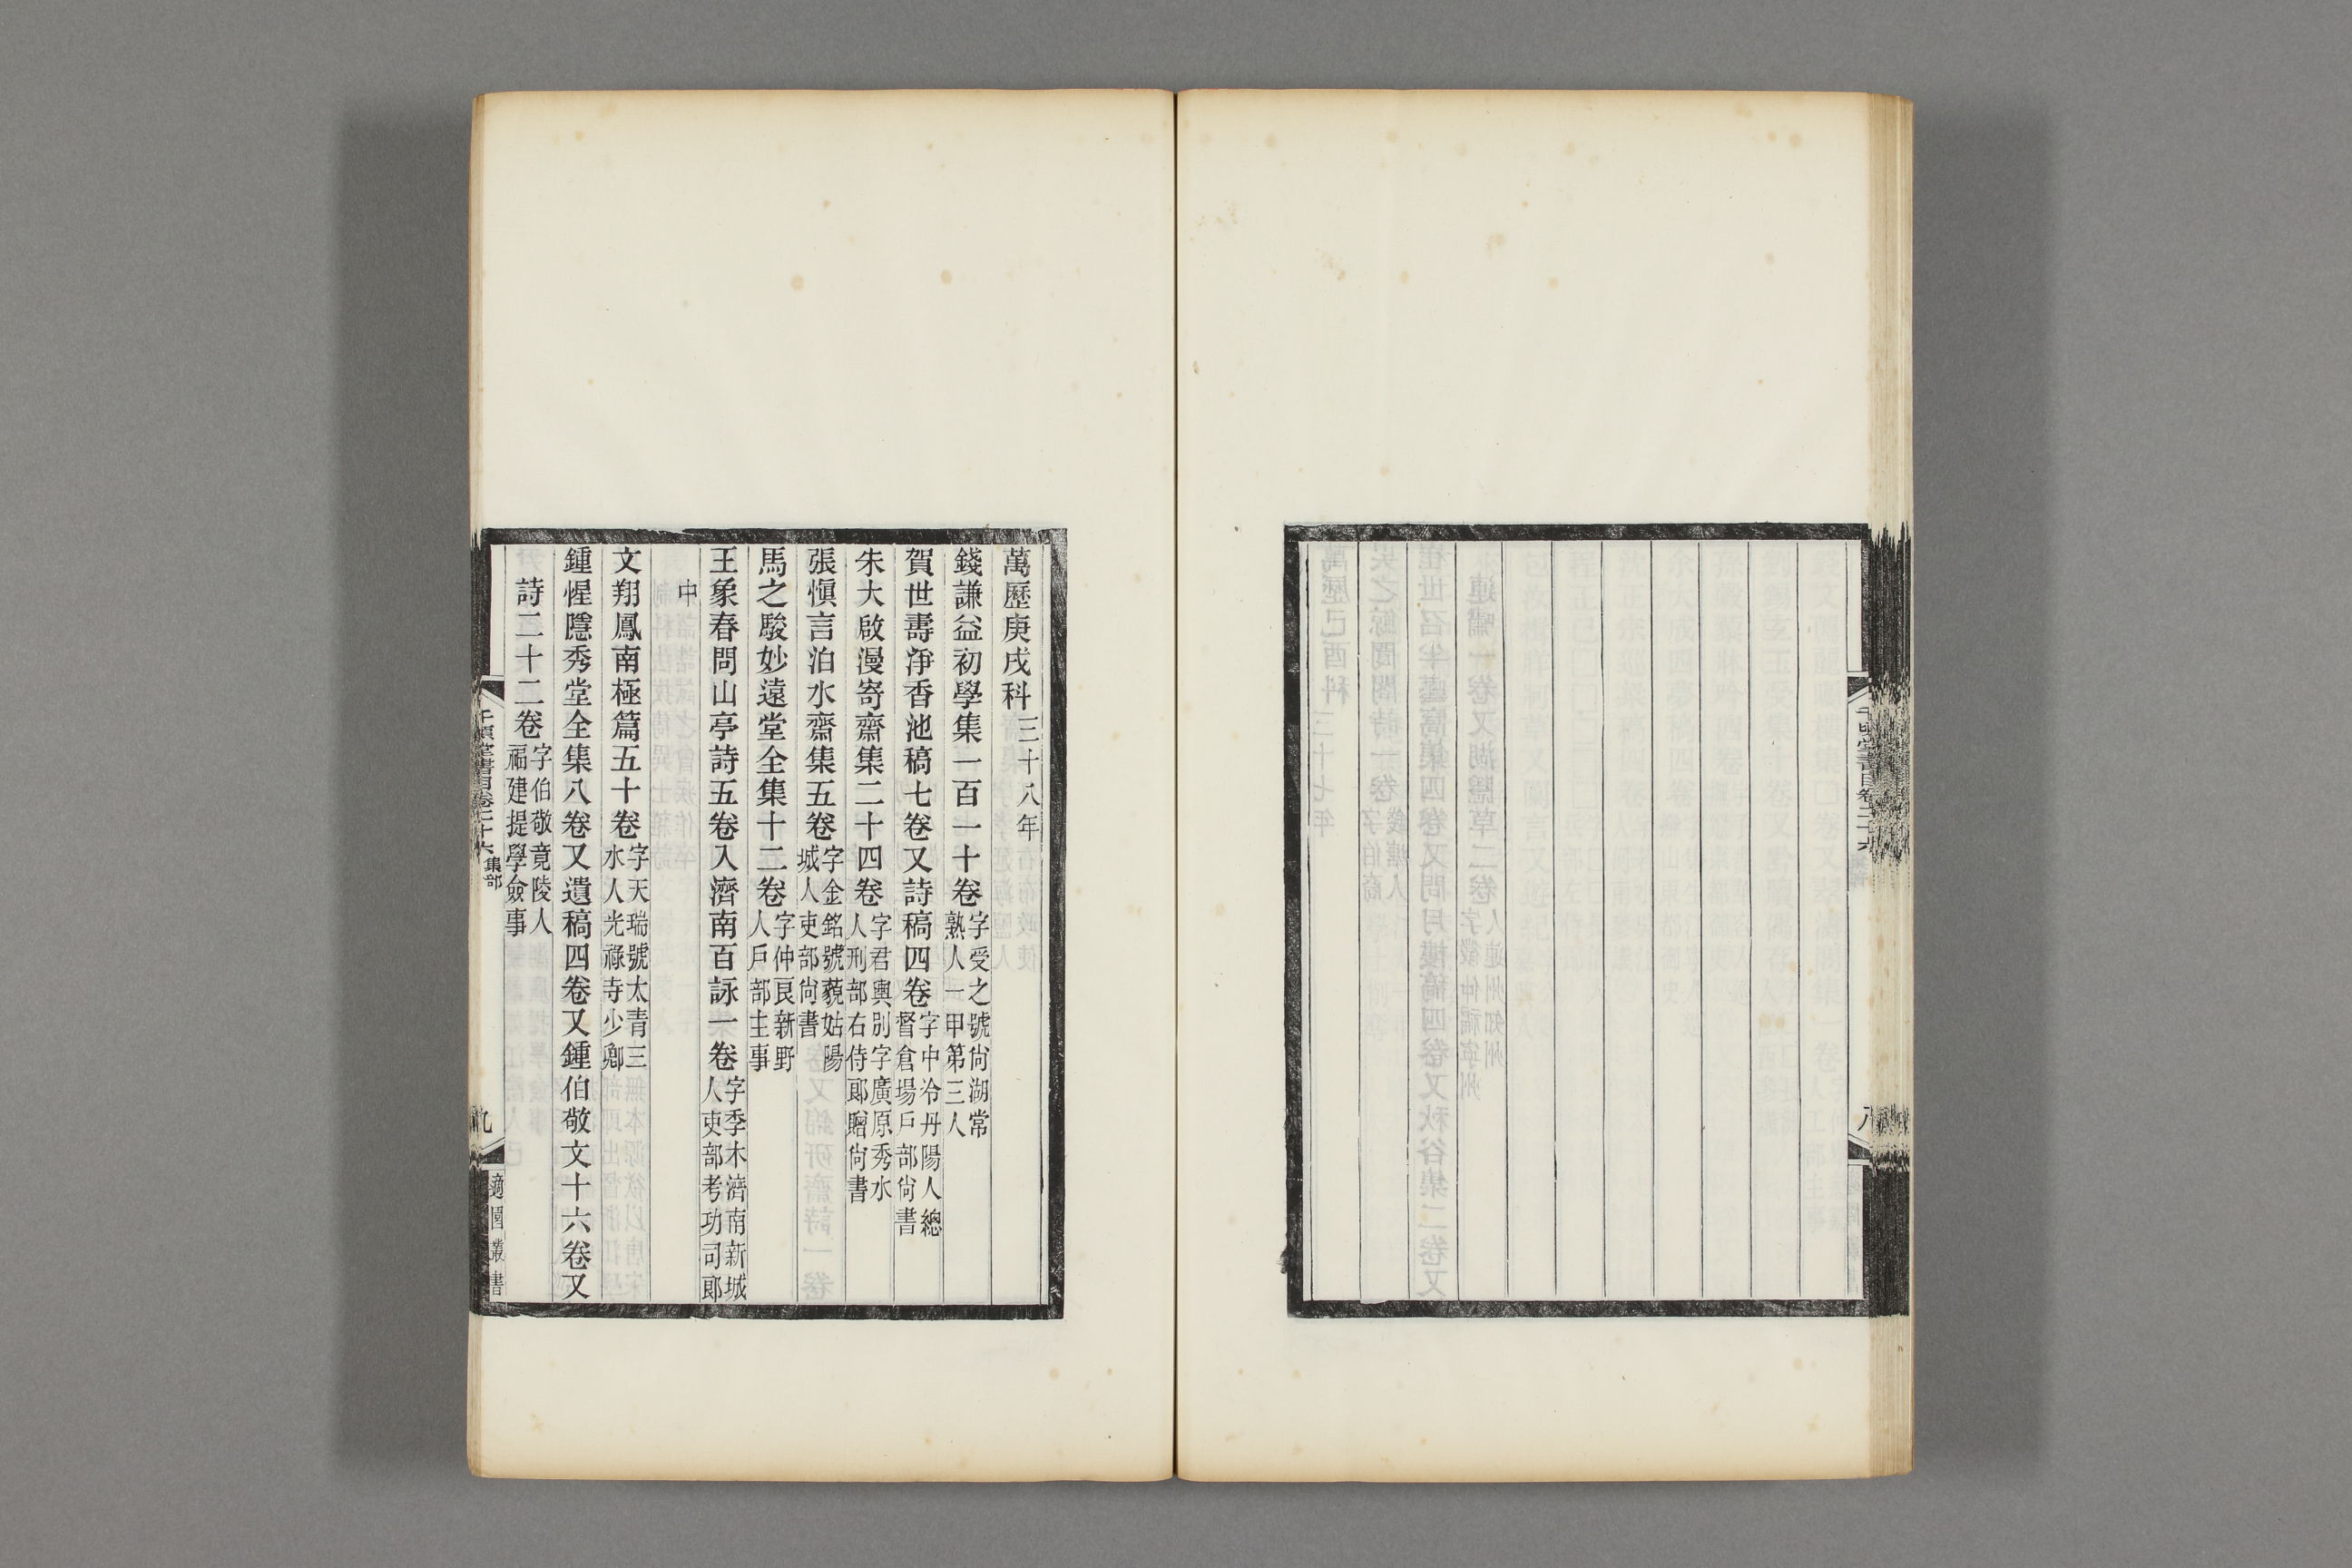 萬歷庚戌科三十八年
錢謙益初學集一百一十卷字受之號尙湖常熟人一甲第三人
賀世壽淨香池稿七卷又詩稿四卷字中泠丹陽人總督倉場戶部尙書
朱大啟漫寄齋集二十四卷字君輿別字廣原秀水人刑部右侍郞贈尙書
張愼言泊水齋集五卷字金銘號藐姑陽城人吏部尙書
馬之駿妙遠堂全集十二卷字仲良新野人戶部主事
王象春問山亭詩五卷入濟南百詠一卷字季木濟南新城人吏部考功司郞
中
文翔鳳南極篇五十卷字天瑞號太青三水人光祿寺少卿
鍾惺隱秀堂全集八卷又遺稿四卷又鍾伯敬文十六卷又
詩二十二卷字伯敬竟陵人福建提學僉事
千頃堂書目卷二十六集部
九
適園叢書